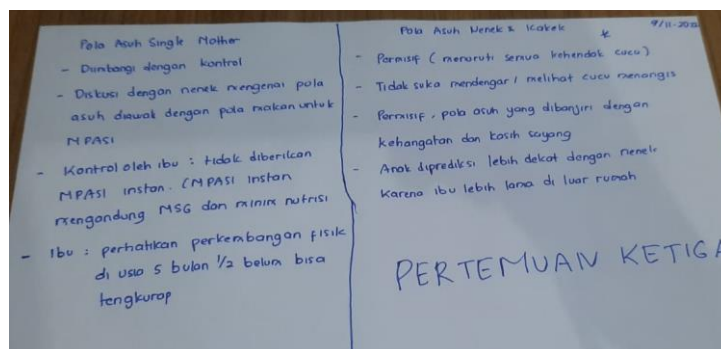 Pola Asuh Single Mother
- Diimbangi dengan kontrol
- Diskusi dengan nenek mengenai pola
asuh diawak dengan pola makan untuk
MPASI
- Kontrol oleh ibu : tidak diberikan
MPASI instan. (MPASI instan
mengandung MSG dan minim nutrisi
- Ibu : perhatikan perkembangan fisik
di usia 5 bulan 1/2 belum bisa
tengkurap
Pola Asuh Nenek & Kakek
- Permisif (menuruti semua kehendak cucu)
- Tidak suka mendengar / melihat cucu menangis
- Permisif, pola asuh yang dibanjiri dengan
kehangatan dan kasih sayang
- Anak diprediksi lebih dekat dengan nenek
karena ibu lebih lama di luar rumah
PERTEMUAN KETIGA